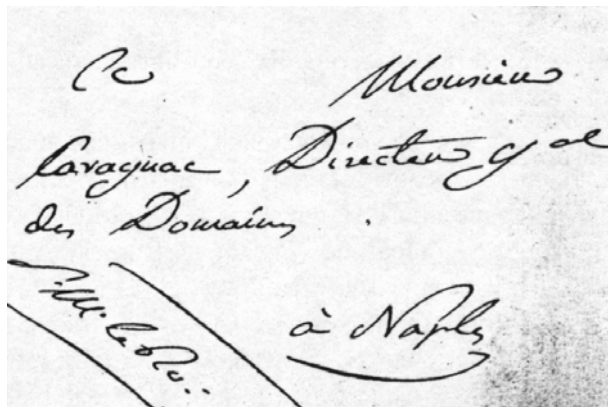 à Monsieur
Cavagnac, Directeur gal
des Domaines
à Naples
le Roi.